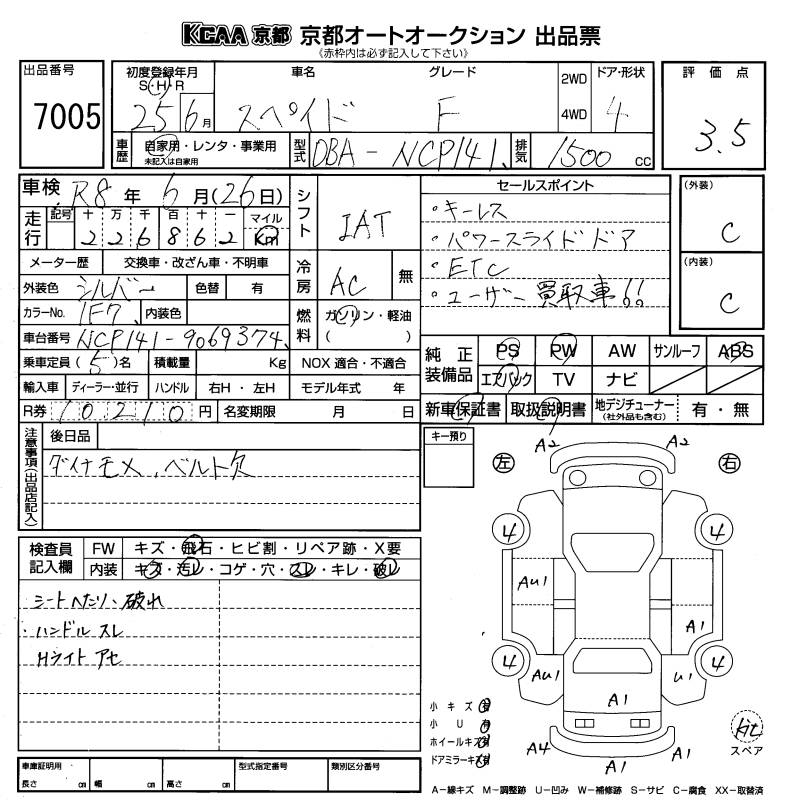 KCAA 京都 京都オートオークション 出品票
《赤枠内は必ず記入して下さい》
出品番号
7005
初度登録年月
S・H・R
25 6月
車名
スペイド
グレード
F
2WD
4WD
ドア・形状
4
評価点
3.5
車歴
自家用・レンタ・事業用
未記入は自家用
型式
DBA-NCP141
排気
1500 cc
車検 R8年 6月(26日)
走行
記号 十 万 千 百 十 一
2 2 6 8 6 2
マイル
Km
メーター歴 交換車・改ざん車・不明車
外装色 シルバー 色替 有
カラーNo. 1F7 内装色
車台番号 NCP141-9069374
乗車定員 (5)名 積載量 Kg
輸入車 ディーラー・並行 ハンドル 右H・左H
R券 10210円 名変期限 月 日
シフト
IAT
冷房
AC
無
燃料
ガソリン・軽油
( )
NOX 適合・不適合
モデル年式 年
セールスポイント
・キーレス
・パワースライドドア
・ETC
・ユーザー買取車!!
(外装)
C
(内装)
C
純正装備品
PS PW AW サンルーフ ABS
エアバック TV ナビ
新車保証書 取扱説明書 地デジチューナー
(社外品も含む)
有・無
注意事項(出品店記入)
後日品
ダイナモメ、ベルト欠
キー預り
検査員記入欄
FW キズ・飛石・ヒビ割・リペア跡・X要
内装 キズ・汚レ・コゲ・穴・スレ・キレ・破レ
・シートヘタリ、破れ
・ハンドル スレ
Hライト アセ
左 右
A2 A2
4 4
AU1
A1
4 4
AU1 U1
A1
A4 A1 A1
小キズ 有
小U 有
ホイールキズ 有
ドアミラーキズ 有
kit
スペア
車庫証明用
長さ cm 幅 cm 高さ cm
型式指定番号
類別区分番号
A-線キズ M-調整跡 U-凹み W-補修跡 S-サビ C-腐食 XX-取替済